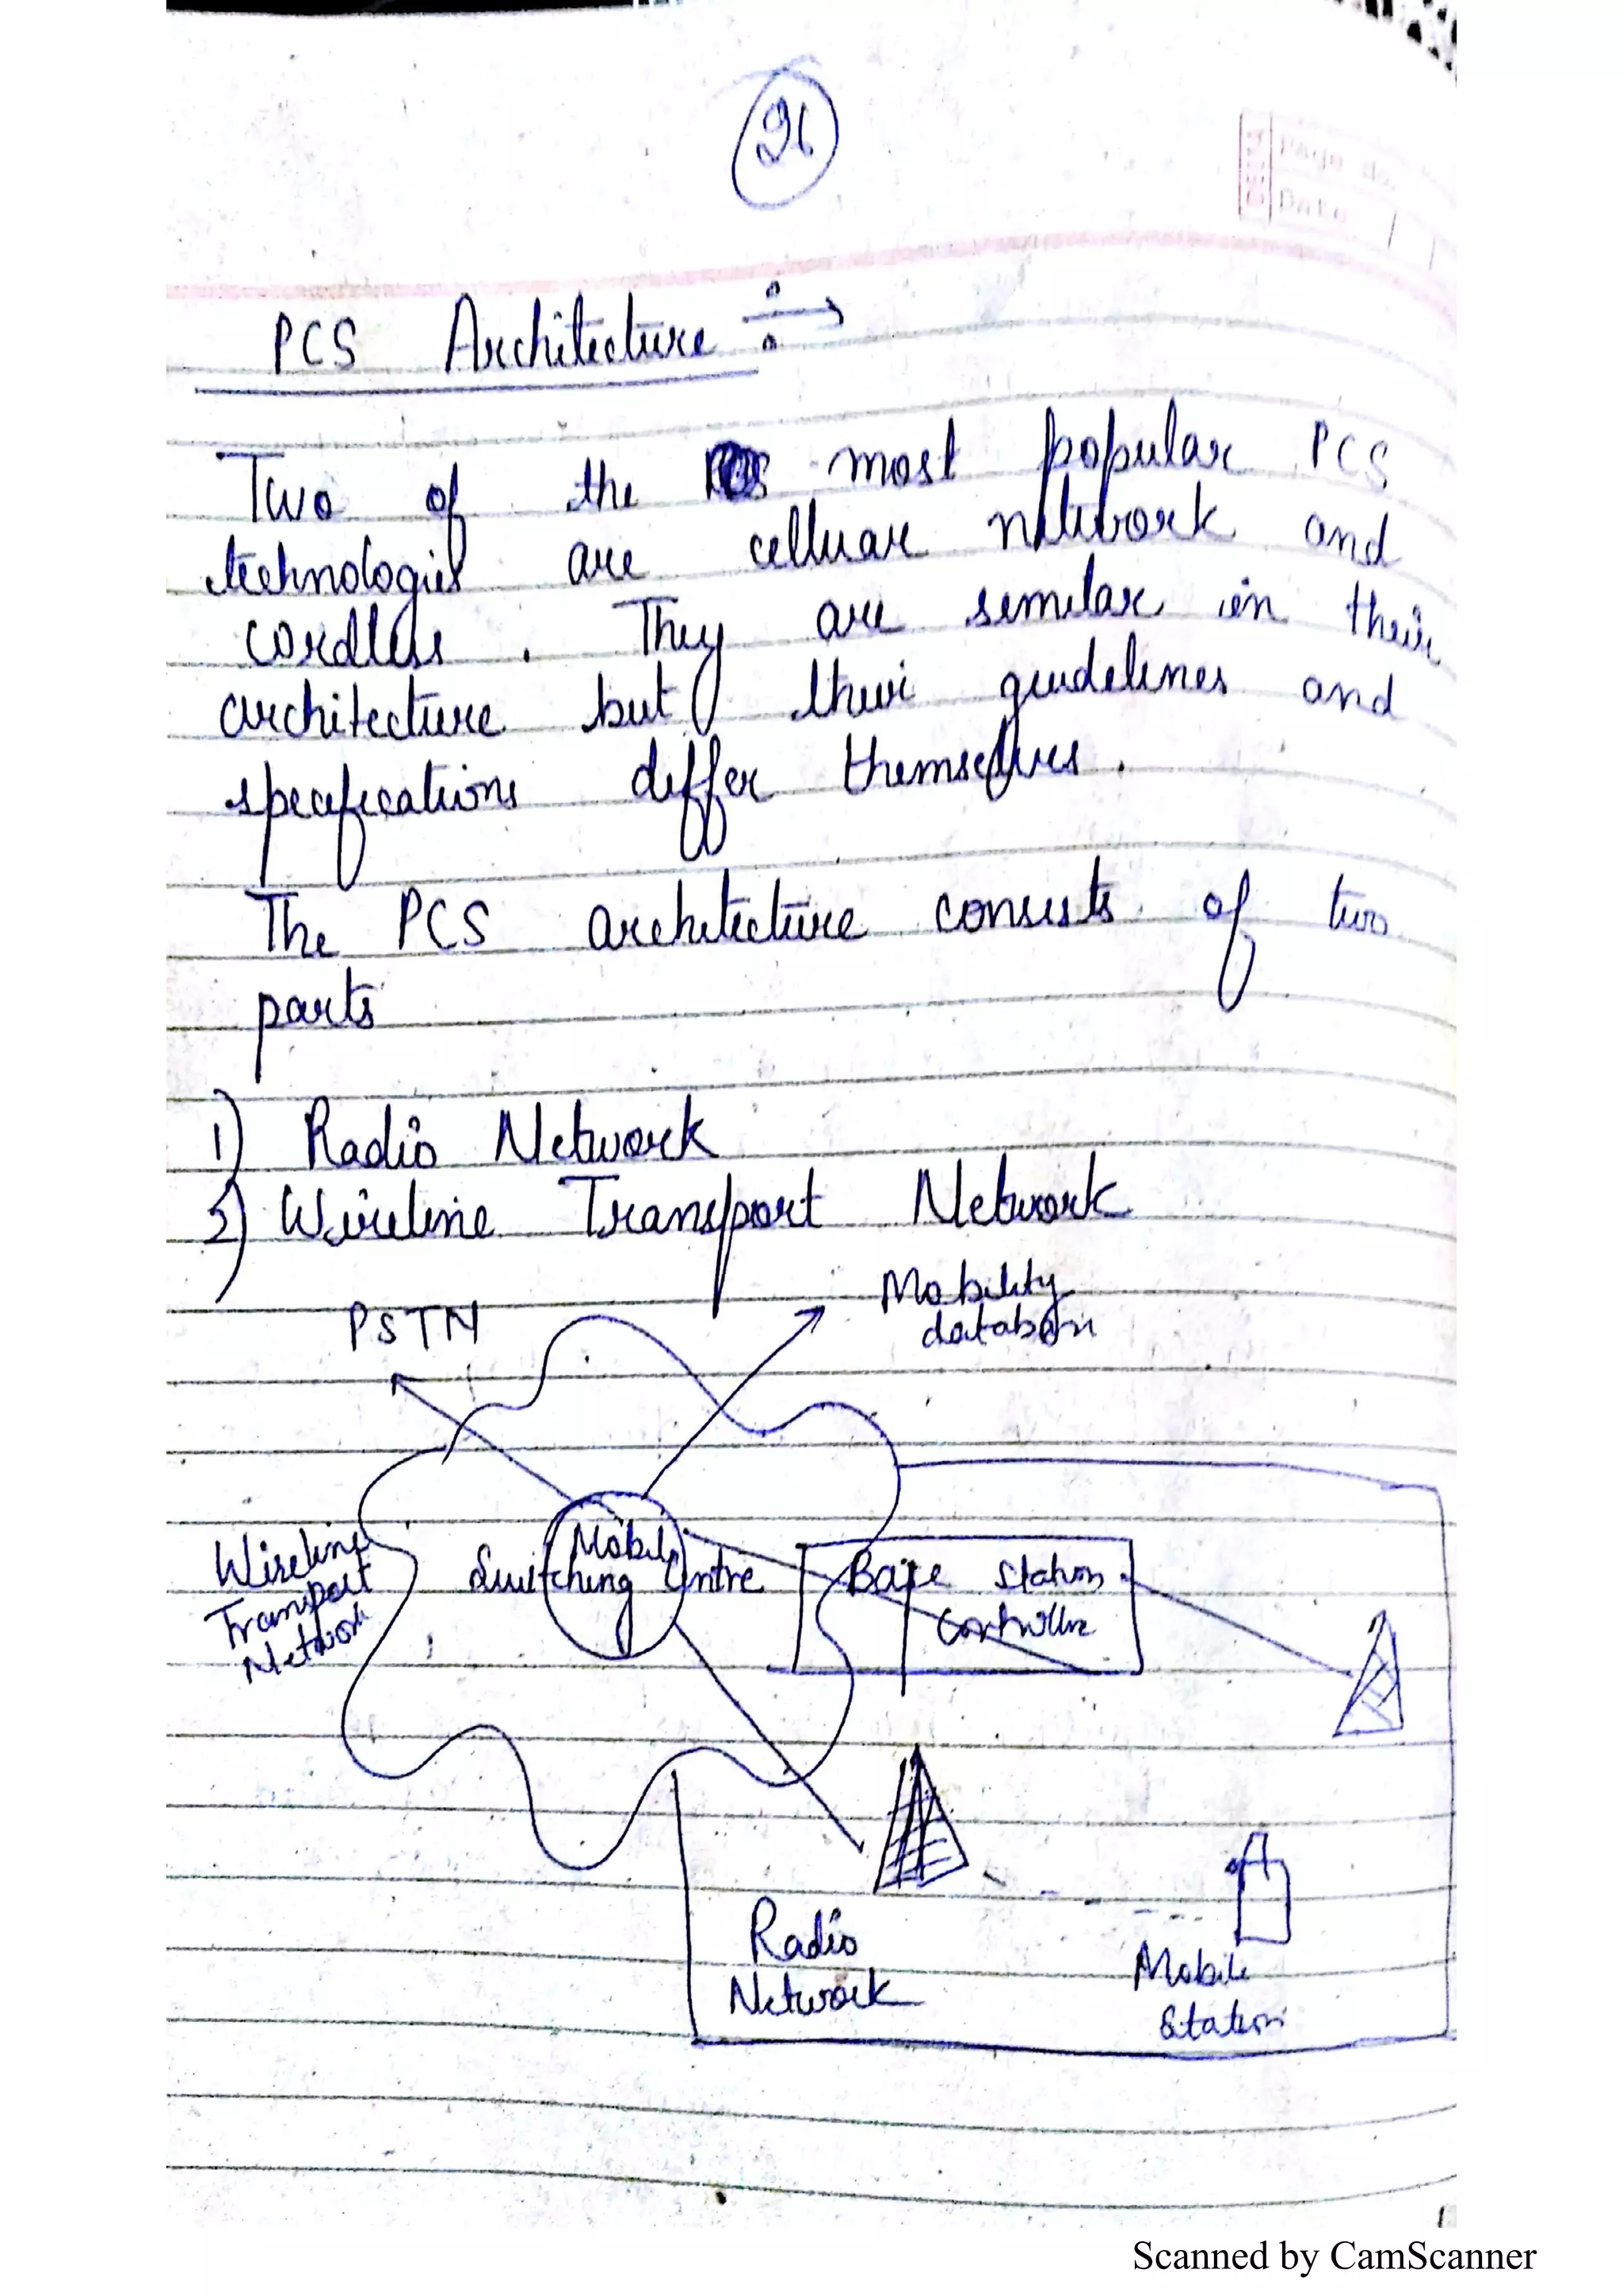 26
Page No.
Date
PCS Architecture
Two of the most popular PCS
technologies are celluar network and
cordless. They are similar in their
architecture but their guidelines and
specifications differ themselves.
The PCS architecture consists of two
parts
1) Radio Network
2) Wireline Transport Network
PSTN
Mobility
database
Wireline
Transport
Network
Mobile
Switching Centre
Base Station
Controller
Radio
Network
Mobile
Station
Scanned by CamScanner